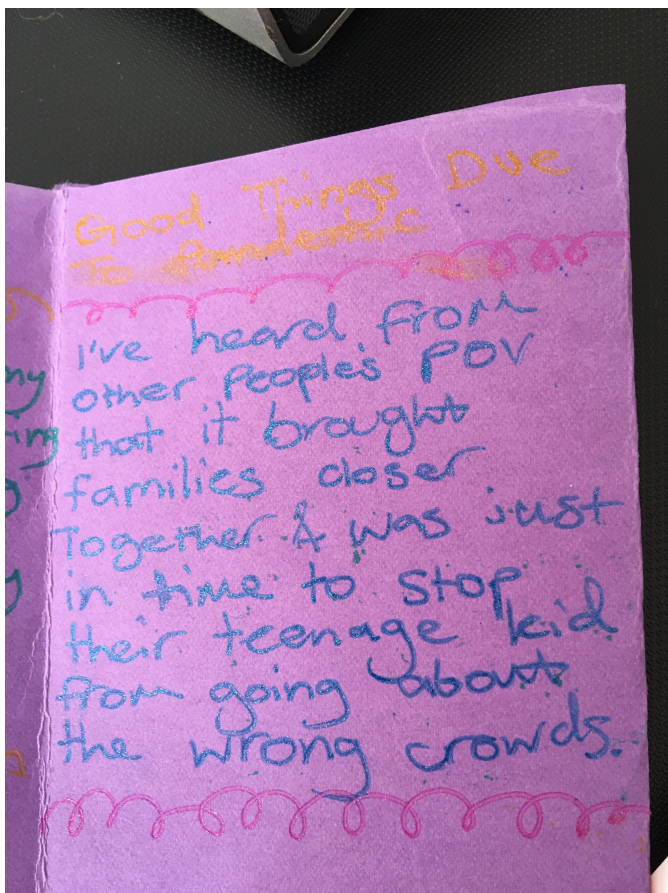 Good Things Due
To Pandemic
I've heard from
other People's POV
that it brought
families closer
Together & was just
in time to stop
their teenage kid
from going about
the wrong crowds.
my
ring